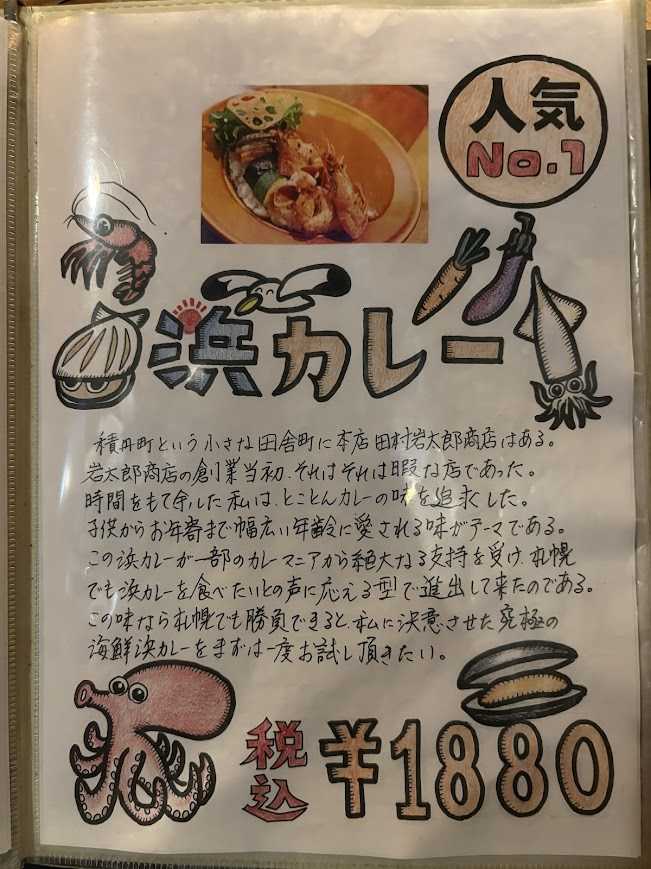 人気
No.1
浜カレー
積丹町という小さな田舎町に本店田村岩太郎商店はある。
岩太郎商店の創業当初、それはそれは暇な店であった。
時間をもて余した私は、とことんカレーの味を追求した。
子供からお年寄まで幅広い年齢に愛される味がテーマである。
この浜カレーが一部のカレーマニアから絶大なる支持を受け、札幌
でも浜カレーを食べたいとの声に応える型で進出して来たのである。
この味なら札幌でも勝負できると、私に決意させた究極の
海鮮浜カレーをまずは一度お試し頂きたい。
税込 ¥1880